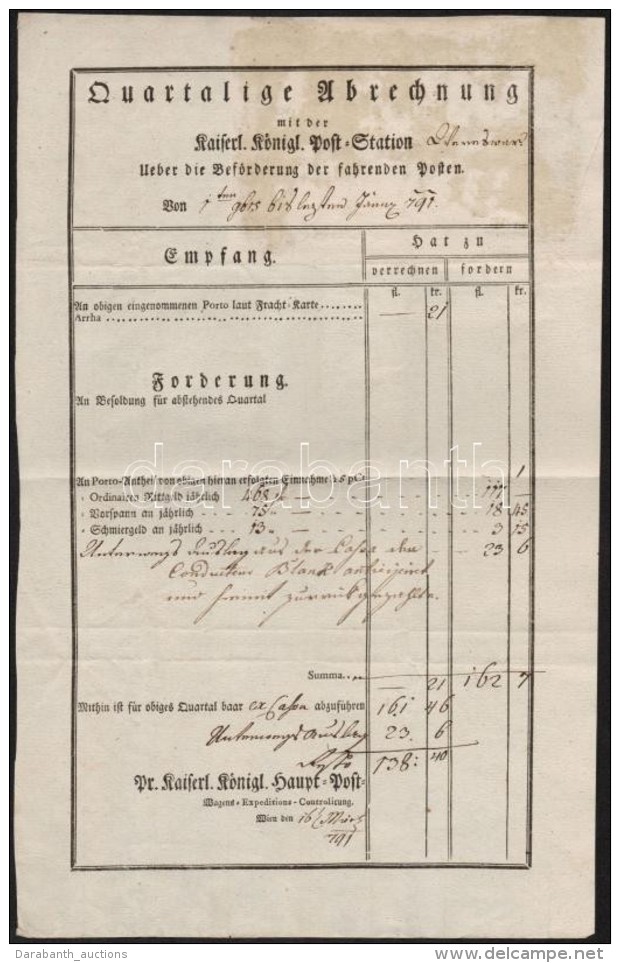 Quartalige Abrechnung
mit der
Kaiserl. Königl. Post-Station
Ueber die Beförderung der fahrenden Posten.
Von 1ten 9bris bis lezten Jänner 791.
Empfang.
Hat zu
verrechnen fordern
fl. kr. fl. kr.
An obigen eingenommenen Porto laut Fracht-Karte ....... — 21
Arrha
Forderung.
An Besoldung für abstehendes Quartal
An Porto-Antheil von obigen hieran erfolgten Einnahme à 5 pCt. 1
- Ordinairen Rittgeld jährlich 468 117
- Vorspann an jährlich 75 18 45
- Schmiergeld an jährlich 13 3 15
Unterwegs Auslag aus der Cassa dem 23 6
Conducteur Blank anticipirt
und hiemit zurückgezahlt.
Summa — 21 162 7
Mithin ist für obiges Quartal baar ex Cassa abzuführen 161 46
Unterwegs Auslag 23. 6
138: 40
Pr. Kaiserl. Königl. Haupt-Post-
Wagens-Expeditions-Controlirung.
Wien den 16 März
791
darabanth
Darabanth_auctions
delcampe.net